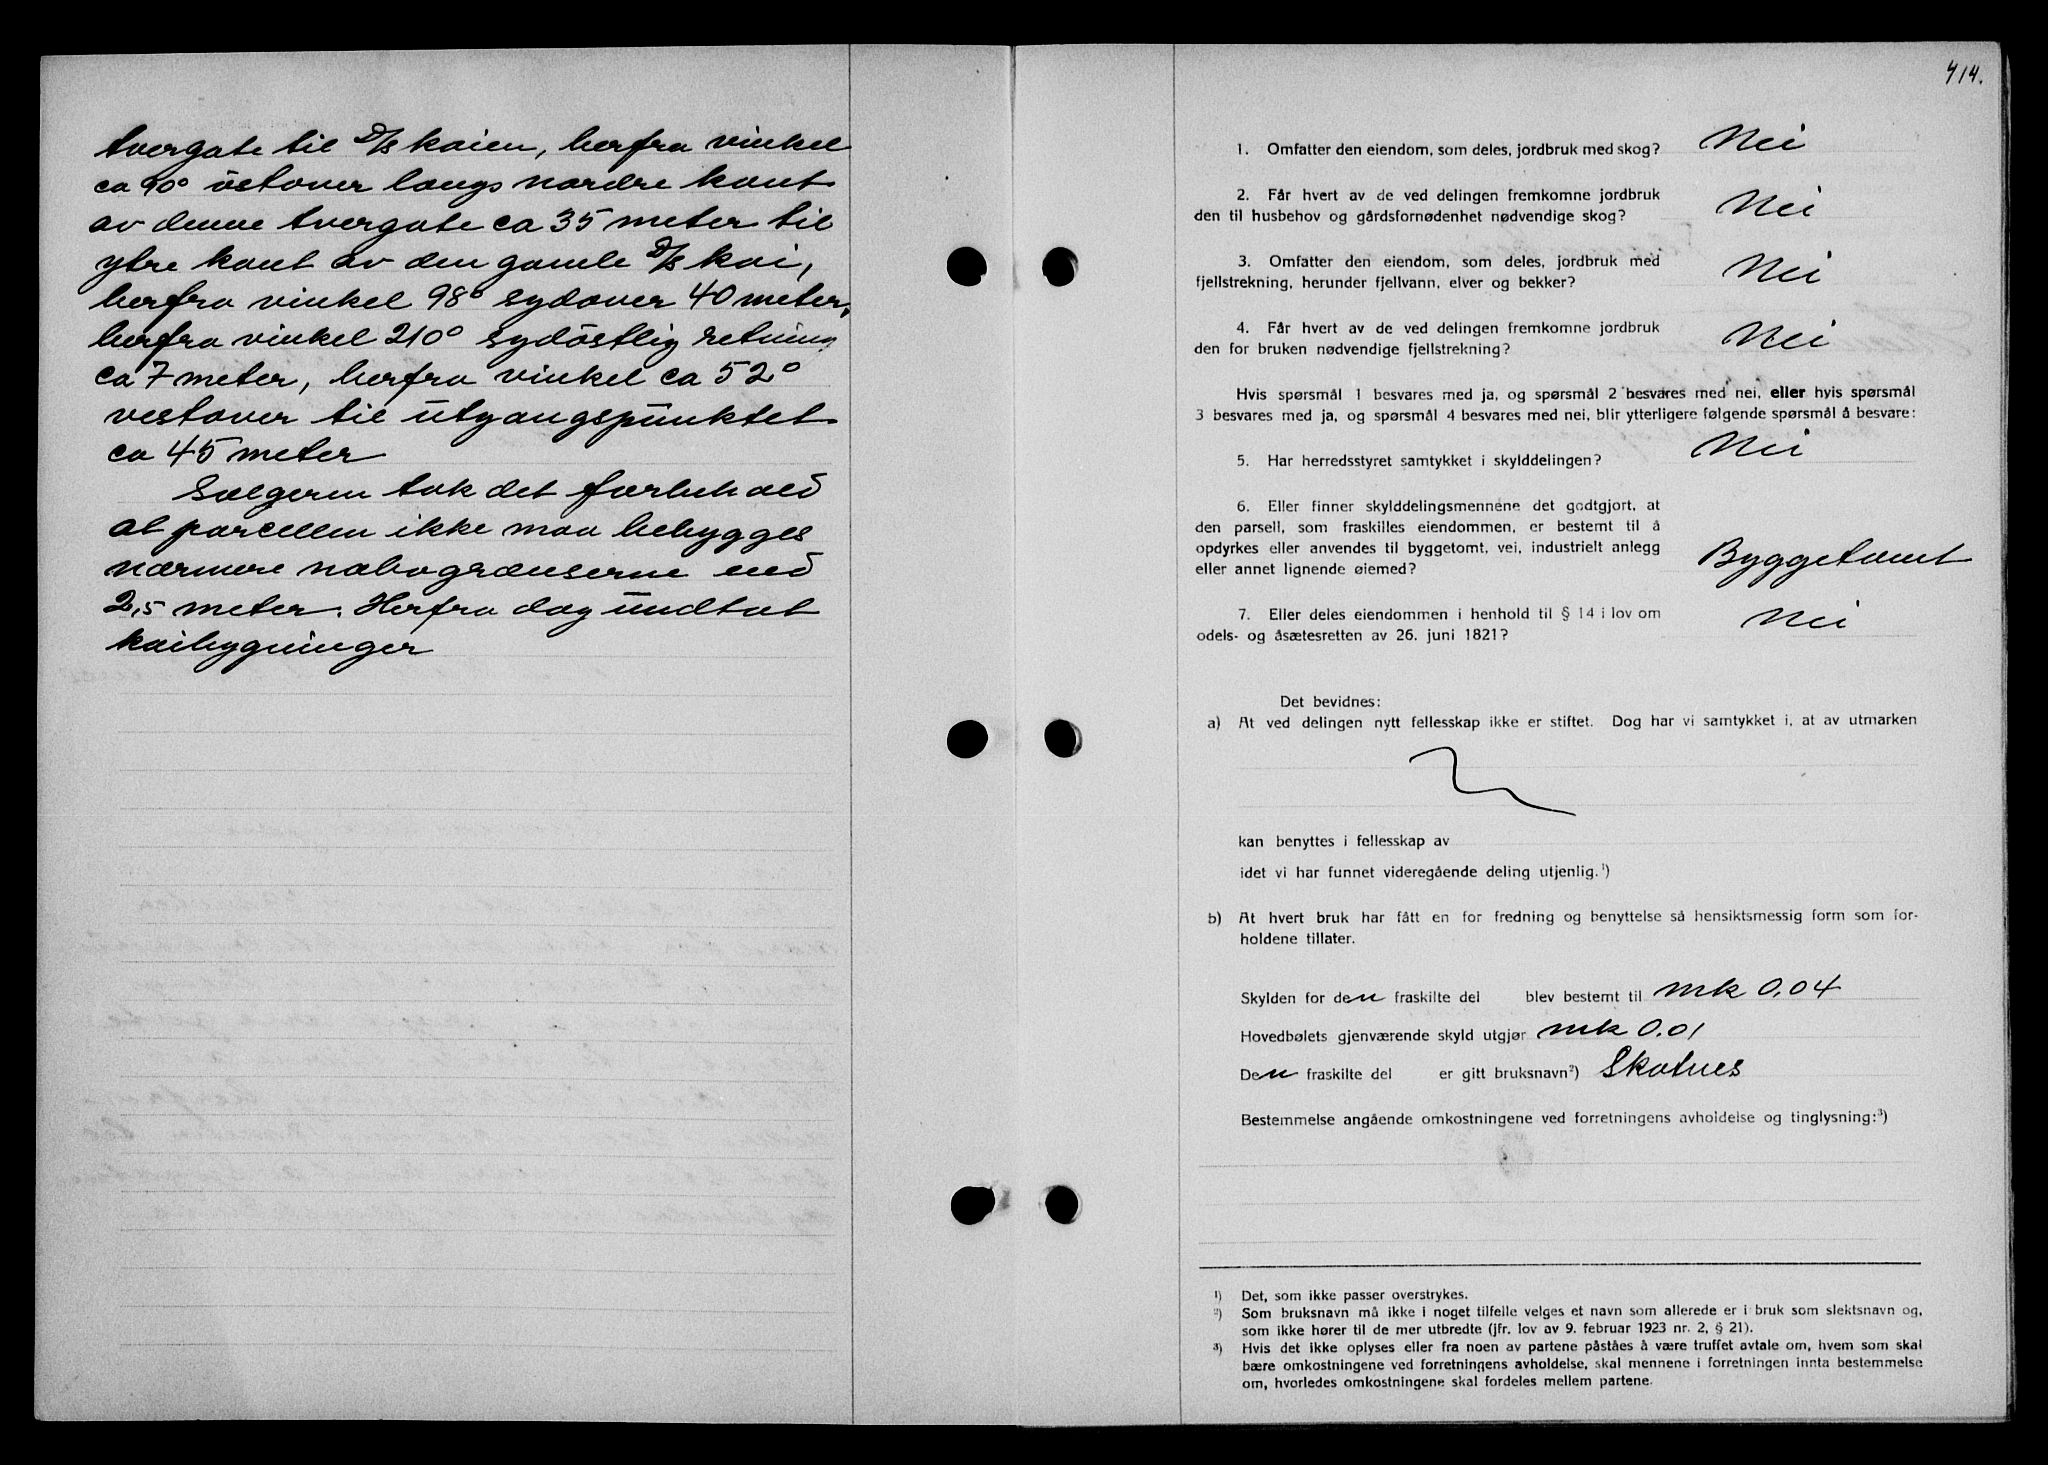 tvergate til D/S kaien, herfra vinkel
ca 90° østover langs nordre kant
av denne tvergate ca 35 meter til
ytre kant av den gamle D/S kai,
herfra vinkel 98° sydover 40 meter,
herfra vinkel 210° sydøstlig retning
ca 7 meter, herfra vinkel ca 52°
vestover til utgangspunktet
ca 45 meter
Sælgeren tok det forbehold
at parcellen ikke maa bebygges
nærmere nabogrænserne end
2,5 meter. Herfra dog undtat
kaibygninger
414.
1. Omfatter den eiendom, som deles, jordbruk med skog? Nei
2. Får hvert av de ved delingen fremkomne jordbruk
den til husbehov og gårdsfornødenhet nødvendige skog? Nei
3. Omfatter den eiendom, som deles, jordbruk med
fjellstrekning, herunder fjellvann, elver og bekker? Nei
4. Får hvert av de ved delingen fremkomne jordbruk
den for bruken nødvendige fjellstrekning? Nei
Hvis spørsmål 1 besvares med ja, og spørsmål 2 besvares med nei, eller hvis spørsmål
3 besvares med ja, og spørsmål 4 besvares med nei, blir ytterligere følgende spørsmål å besvare:
5. Har herredsstyret samtykket i skylddelingen? Nei
6. Eller finner skylddelingsmennene det godtgjort, at
den parsell, som fraskilles eiendommen, er bestemt til å
opdyrkes eller anvendes til byggetomt, vei, industrielt anlegg
eller annet lignende øiemed? Byggetomt
7. Eller deles eiendommen i henhold til § 14 i lov om
odels- og åsætesretten av 26. juni 1821? Nei
Det bevidnes:
a) At ved delingen nytt fellesskap ikke er stiftet. Dog har vi samtykket i, at av utmarken
kan benyttes i fellesskap av
idet vi har funnet videregående deling utjenlig.¹)
b) At hvert bruk har fått en for fredning og benyttelse så hensiktsmessig form som for-
holdene tillater.
Skylden for den fraskilte del blev bestemt til mk 0.04
Hovedbølets gjenværende skyld utgjør mk 0.01
Den fraskilte del er gitt bruksnavn²) Skotnes
Bestemmelse angående omkostningene ved forretningens avholdelse og tinglysning:³)
¹) Det, som ikke passer overstrykes.
²) Som bruksnavn må ikke i noget tilfelle velges et navn som allerede er i bruk som slektsnavn og,
som ikke hører til de mer utbredte (jfr. lov av 9. februar 1923 nr. 2, § 21).
³) Hvis det ikke oplyses eller fra noen av partene påståes å være truffet avtale om, hvem som skal
bære omkostningene ved forretningens avholdelse, skal mennene i forretningen innta bestemmelse
om, hvorledes omkostningene skal fordeles mellem partene.